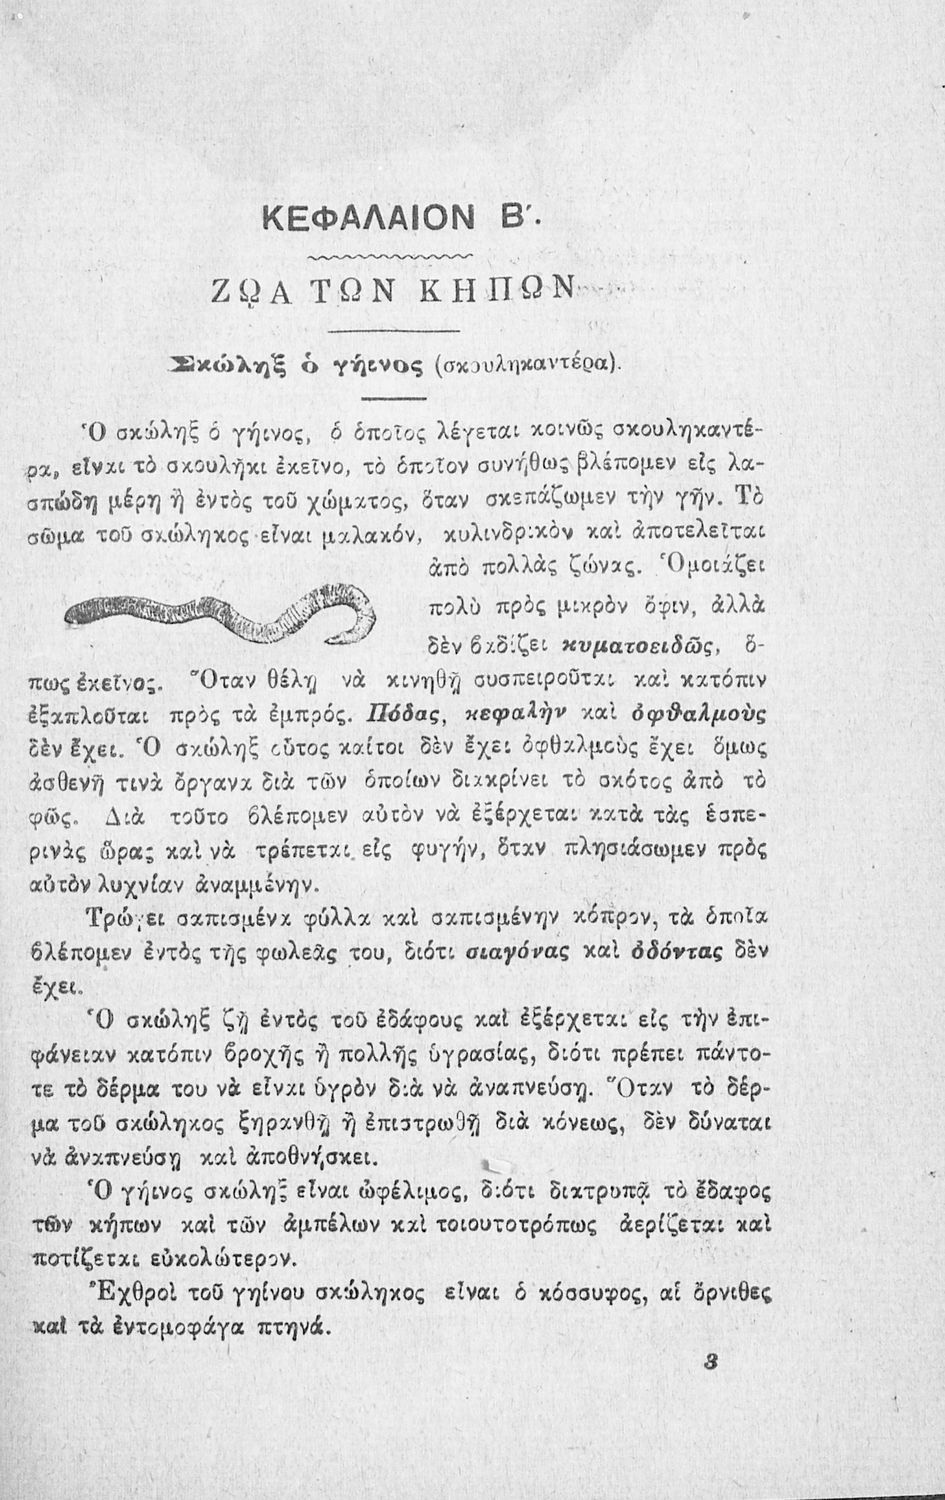 ΚΕΦΑΛΑΙΟΝ Β΄.
ΖΩΑ ΤΩΝ ΚΗΠΩΝ
Σκώληξ ὁ γήινος (σκουληκαντέρα).
Ὁ σκώληξ ὁ γήινος, ὁ ὁποῖος λέγεται κοινῶς σκουληκαντέ-
ρα, εἶναι τὸ σκουλῆκι ἐκεῖνο, τὸ ὁποῖον συνήθως βλέπομεν εἰς λα-
σπώδη μέρη ἢ ἐντὸς τοῦ χώματος, ὅταν σκεπάζωμεν τὴν γῆν. Τὸ
σῶμα τοῦ σκώληκος εἶναι μαλακόν, κυλινδρικὸν καὶ ἀποτελεῖται
ἀπὸ πολλὰς ζώνας. Ὁμοιάζει
πολὺ πρὸς μικρὸν ὄφιν, ἀλλὰ
δὲν βαδίζει κυματοειδῶς, ὅ-
πως ἐκεῖνος. Ὅταν θέλῃ νὰ κινηθῇ συσπειροῦται καὶ κατόπιν
ἐξαπλοῦται πρὸς τὰ ἐμπρός. Πόδας, κεφαλὴν καὶ ὀφθαλμοὺς
δὲν ἔχει. Ὁ σκώληξ οὗτος καίτοι δὲν ἔχει ὀφθαλμοὺς ἔχει ὅμως
ἀσθενῆ τινὰ ὄργανα διὰ τῶν ὁποίων διακρίνει τὸ σκότος ἀπὸ τὸ
φῶς. Διὰ τοῦτο βλέπομεν αὐτὸν νὰ ἐξέρχεται κατὰ τὰς ἑσπε-
ρινὰς ὥρας καὶ νὰ τρέπεται εἰς φυγήν, ὅταν πλησιάσωμεν πρὸς
αὐτὸν λυχνίαν ἀναμμένην.
Τρώγει σαπισμένα φύλλα καὶ σαπισμένην κόπρον, τὰ ὁποῖα
βλέπομεν ἐντὸς τῆς φωλεᾶς του, διότι σιαγόνας καὶ ὀδόντας δὲν
ἔχει.
Ὁ σκώληξ ζῇ ἐντὸς τοῦ ἐδάφους καὶ ἐξέρχεται εἰς τὴν ἐπι-
φάνειαν κατόπιν βροχῆς ἢ πολλῆς ὑγρασίας, διότι πρέπει πάντο-
τε τὸ δέρμα του νὰ εἶναι ὑγρὸν διὰ νὰ ἀναπνεύσῃ. Ὅταν τὸ δέρ-
μα τοῦ σκώληκος ξηρανθῇ ἢ ἐπιστρωθῇ διὰ κόνεως, δὲν δύναται
νὰ ἀναπνεύσῃ καὶ ἀποθνήσκει.
Ὁ γήινος σκώληξ εἶναι ὠφέλιμος, διότι διατρυπᾷ τὸ ἔδαφος
τῶν κήπων καὶ τῶν ἀμπέλων καὶ τοιουτοτρόπως ἀερίζεται καὶ
ποτίζεται εὐκολώτερον.
Ἐχθροὶ τοῦ γηίνου σκώληκος εἶναι ὁ κόσσυφος, αἱ ὄρνιθες
καὶ τὰ ἐντομοφάγα πτηνά.
3